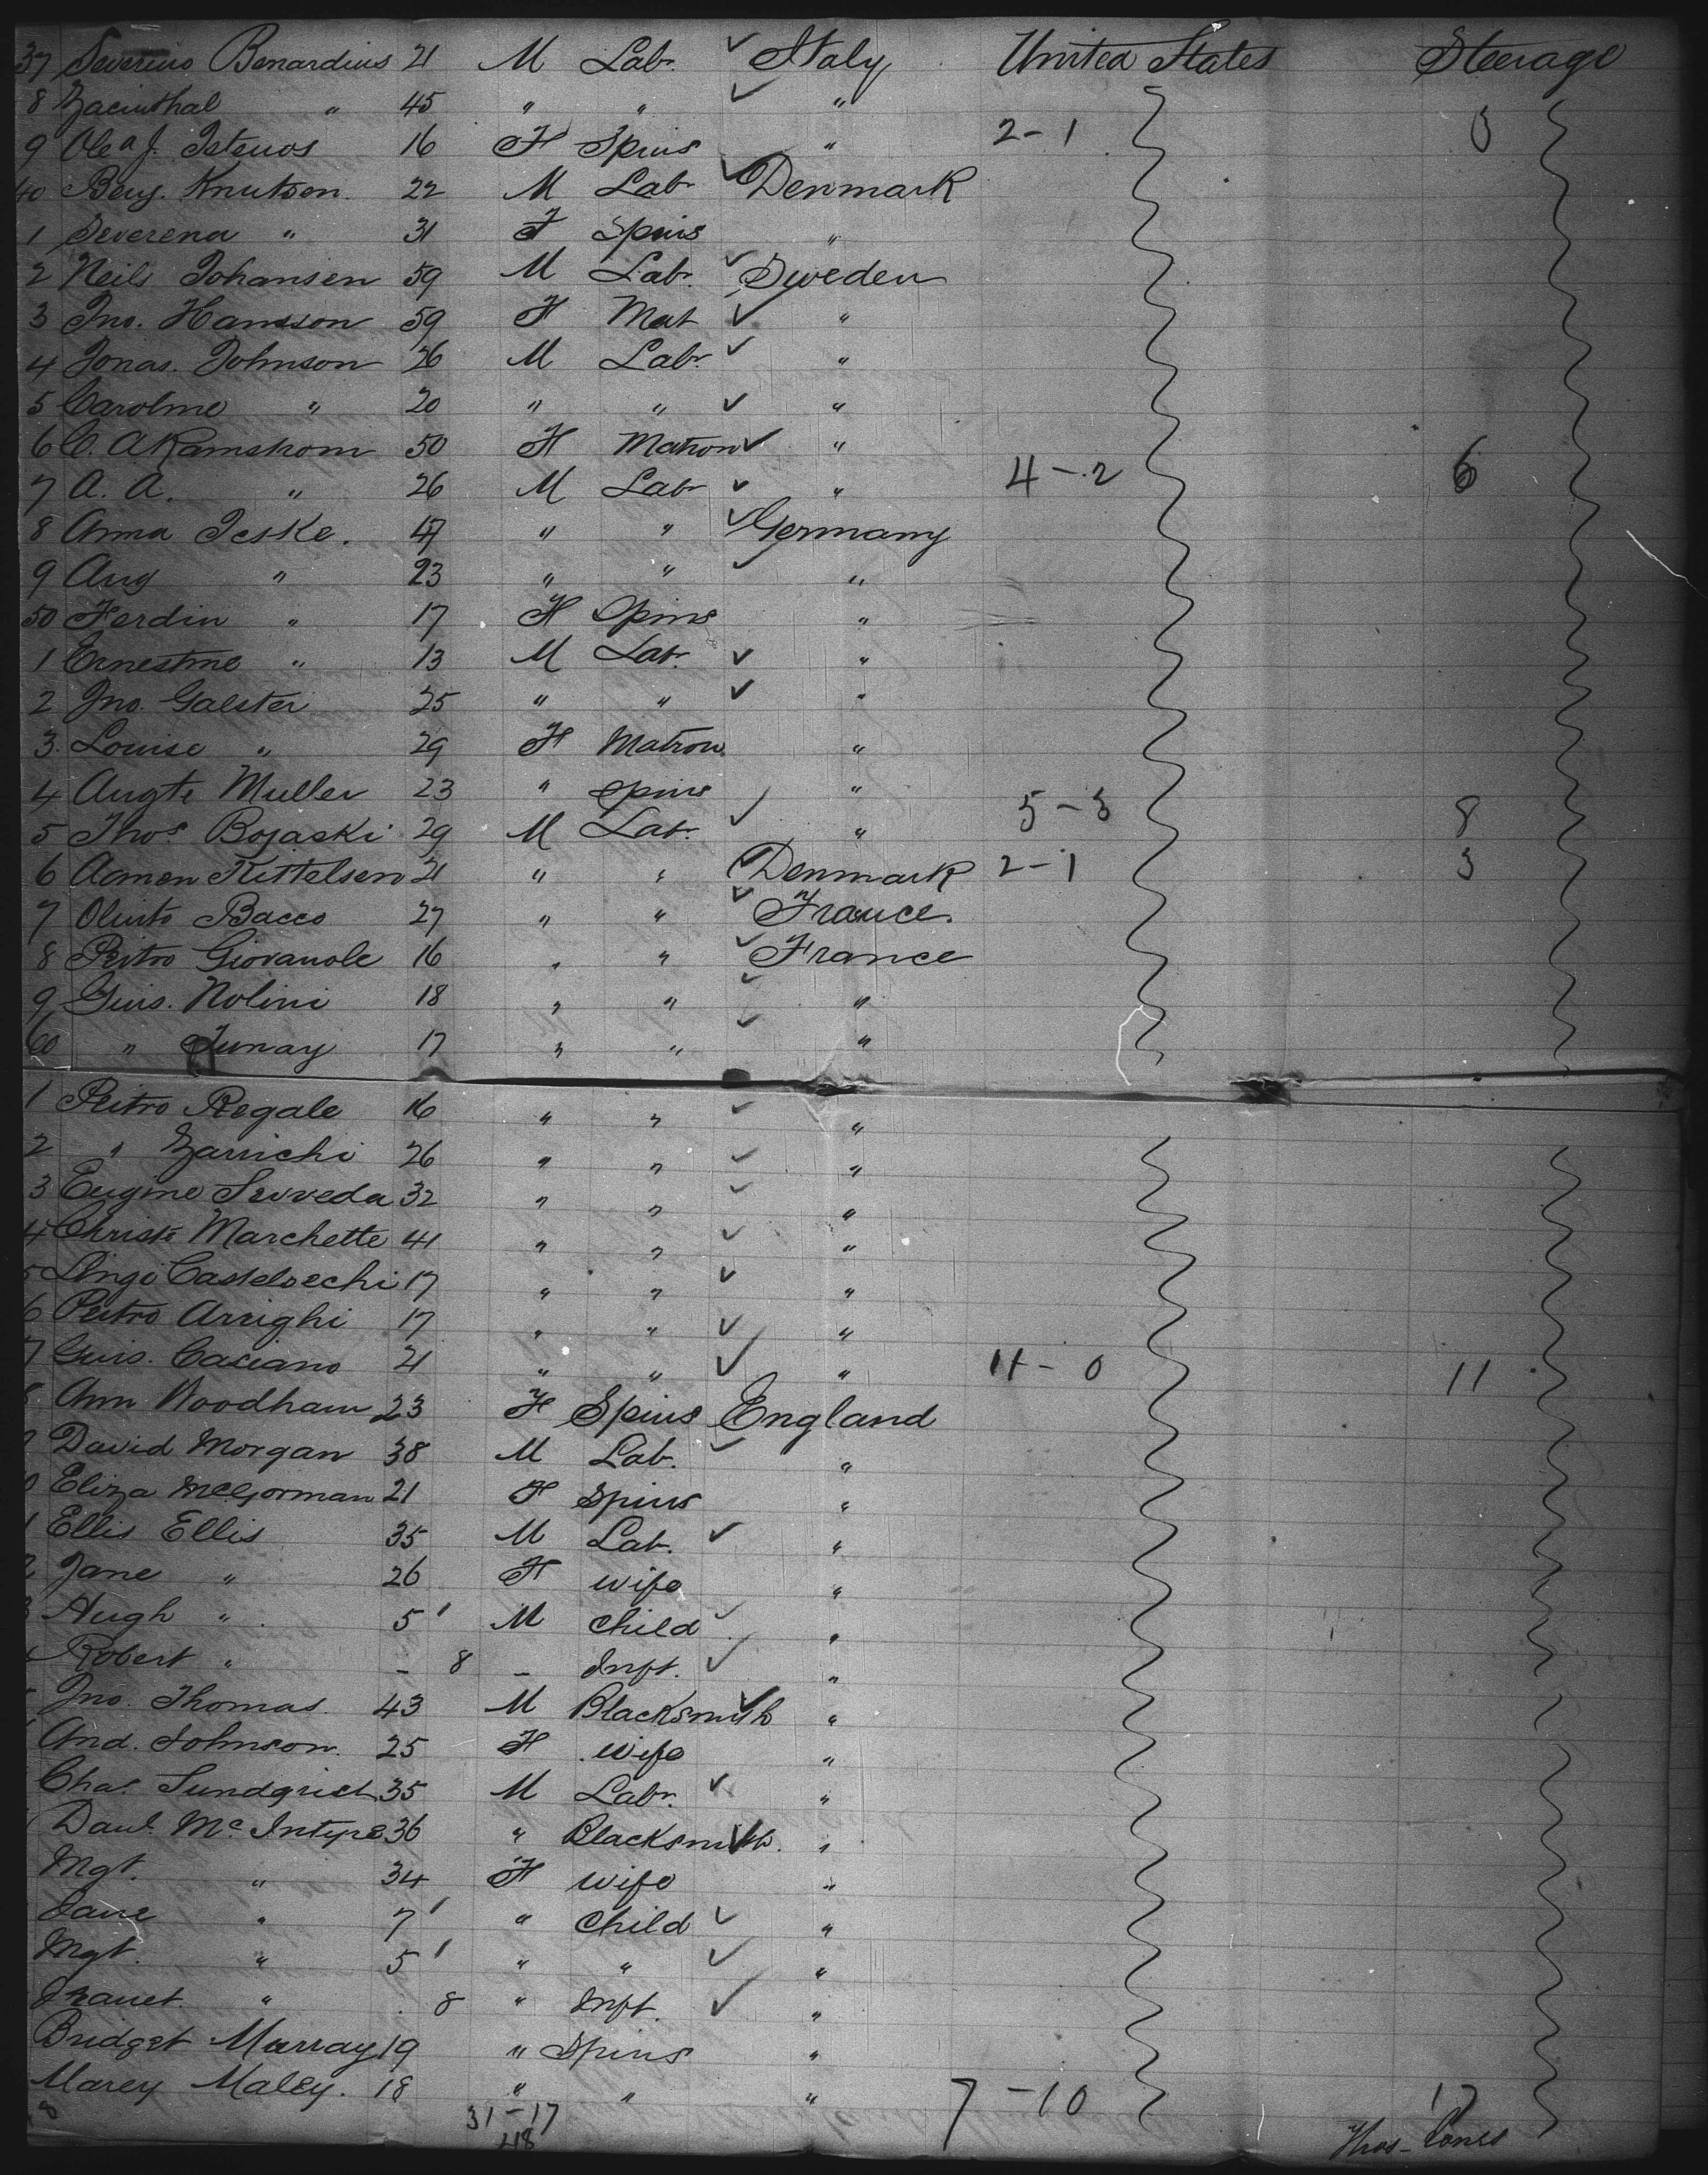 37 Severino Benardius 21 M Lab. ✓ Italy United States Steerage
8 Zacinthal " 45 " " ✓ "
9 Ole a J. Tetenos 16 F Spins " 2-1 3
40 Benj. Knutson 22 M Lab ✓ Denmark
1 Severena " 31 F Spins "
2 Neils Johansen 59 M Lab. ✓ Sweden
3 Jno. Hansson 59 F Mat ✓ "
4 Jonas. Johnson 26 M Labr. ✓ "
5 Caroline " 20 " " ✓ "
6 C. A Ramstrom 50 F Matron ✓ "
7 A. A. " 26 M Lab ✓ " 4-2 6
8 Anna Teske. 47 " " ✓ Germany
9 Aug " 23 " " ✓ "
50 Ferdin " 17 F Spins "
1 Ernestine " 13 M Lab. ✓ "
2 Jno. Galster 25 " " ✓ "
3. Louise " 29 F Matron. "
4 Augte Muller 23 " Spins "
5 Thos. Bojaski 29 M Lab. ✓ " 5-3 8
6 Aamen Kittelsen 21 " " ✓ Denmark 2-1 3
7 Olinto Bacco 27 " " ✓ France.
8 Peitro Giovanole 16 " " ✓ France
9 Guis. Nolini 18 " " ✓ "
60 " Junay 17 " " ✓ "
1 Peitro Regale 16 " " ✓ "
2 " Zarrichi 26 " " ✓ "
3 Eugine Servveda 32 " " ✓ "
4 Christe Marchette 41 " " ✓ "
5 Angi Casteloechi 17 " " ✓ "
6 Peitro Arrighi 17 " " ✓ "
7 Guis. Casciano 21 " " ✓ " 11-0 11
8 Ann Woodham 23 F Spins England
9 David Morgan 38 M Lab. ✓ "
0 Eliza McGorman 21 F Spins "
1 Ellis Ellis 35 M Lab. ✓ "
2 Jane " 26 F wife "
3 Hugh " 5' M Child ✓ "
Robert " - 8 - Inft. ✓ "
Jno. Thomas. 43 M Blacksmith ✓ "
And. Johnson. 25 F wife "
Chas. Sundqrist 35 M Labr. ✓ "
Danl. Mc. Intyre 36 " Blacksmith. ✓ "
Mgt. " 34 F wife "
Jane " 7' " Child ✓ "
Mgt. " 5' " " ✓ "
" 8 " Inft. ✓ "
Bridget Murray 19 " Spins "
Marey Maley. 18 " " " 7-10 17
31-17
48
Thos. Jones